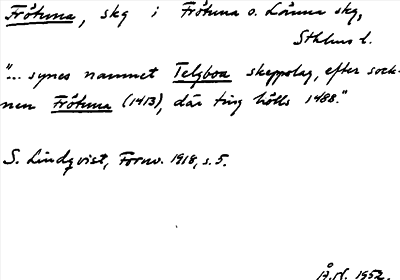 Frötuna, skg i Frötuna o. Länna skg,
Sthlms l.
"... synes namnet Telgboa skeppslag, efter sock-
nen Frötuna (1413), där ting hölls 1488."
S. Lindqvist, Fornv. 1918, s. 5.
Å.sl. 1952.